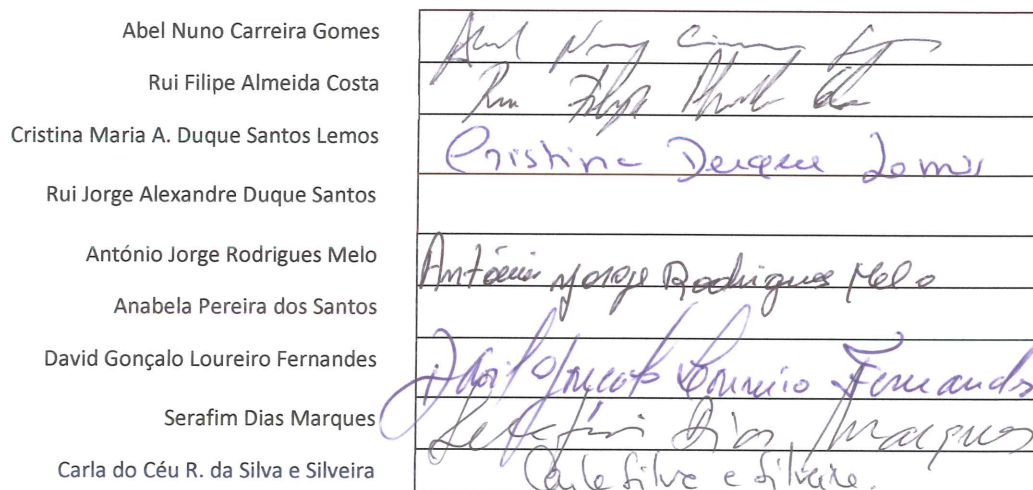 Abel Nuno Carreira Gomes
Rui Filipe Almeida Costa
Rui Filipe
Cristina Maria A. Duque Santos Lemos
Cristina Duque Lemos
Rui Jorge Alexandre Duque Santos
António Jorge Rodrigues Melo
António Jorge Rodrigues Melo
Anabela Pereira dos Santos
David Gonçalo Loureiro Fernandes
David Gonçalo Loureiro Fernandes
Serafim Dias Marques
Serafim Dias Marques
Carla do Céu R. da Silva e Silveira
Carla Silva e Silveira.